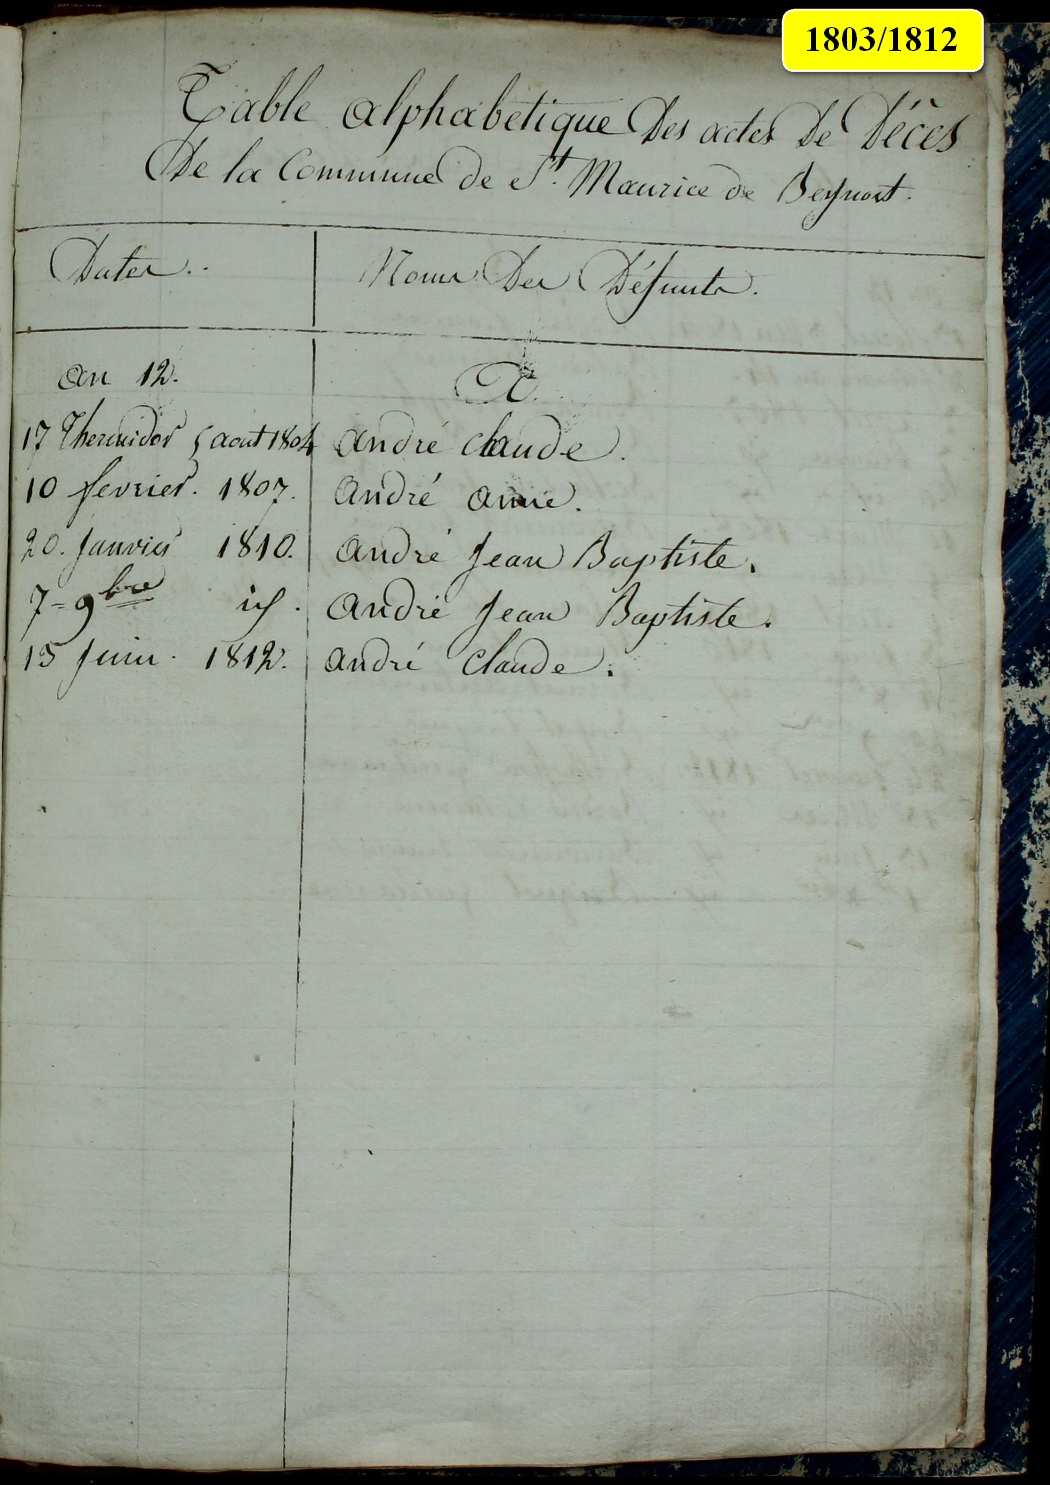 1803/1812
Table alphabetique Des actes De Décès
De la Commune de St. Maurice de Beynost.
Dates.. Noms Des Défunts.
an 12. A.
17 Thermidor 5 aout 1804 andré Claude.
10 fevrier. 1807. andré anne.
20. Janvier 1810. andré Jean Baptiste.
7 = 9bre id. andré Jean Baptiste.
13 Juin. 1812. andré Claude.